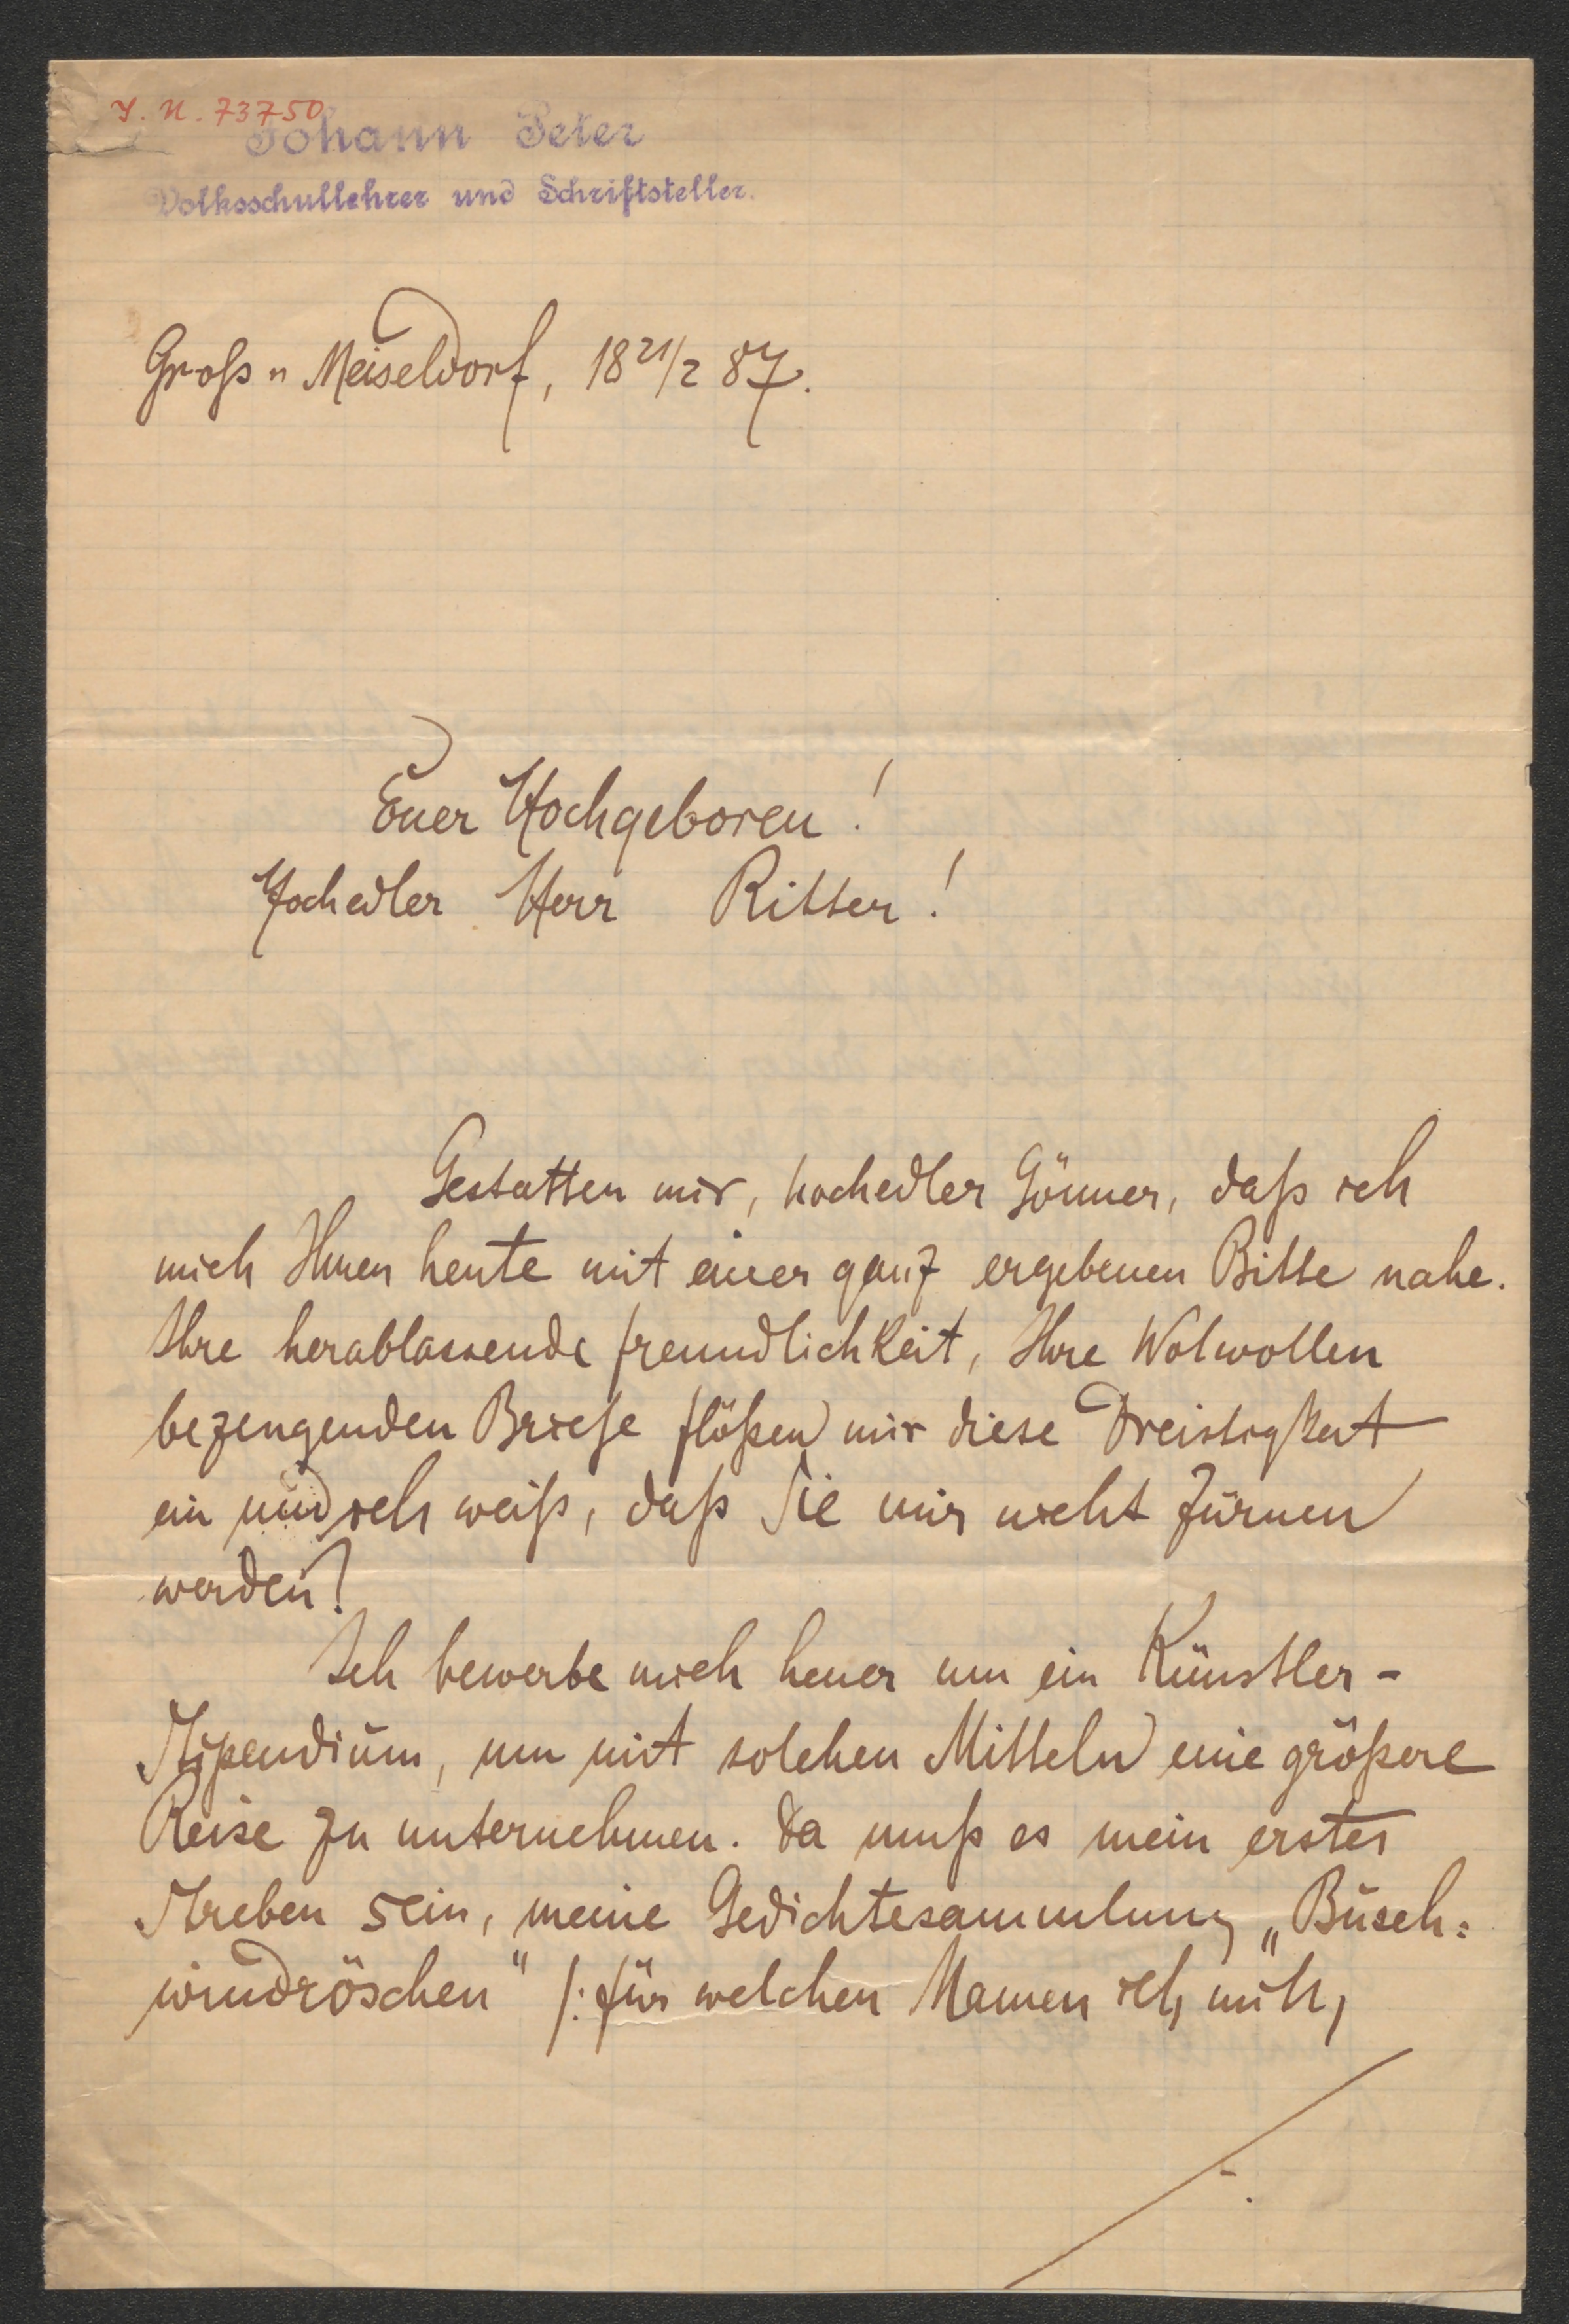 I. N. 73750
Johann Peter
Volksschullehrer und Schriftsteller.
Groß-Meiseldorf, 18 21/2 87.
Euer Hochgeboren!
Hochedler Herr Ritter!
Gestatten mir, hochedler Gönner, daß ich
mich Ihnen heute mit einer ganz ergebenen Bitte nahe.
Ihre herablassende Freundlichkeit, Ihre Wolwollen
bezeugenden Briefe flößen mir diese Dreistigkeit
ein und ich weiß, daß Sie mir nicht zürnen
werden!
Ich bewerbe mich heuer um ein Künstler-
Stipendium, um mit solchen Mitteln eine größere
Reise zu unternehmen. Da muß es mein erstes
Streben sein, meine Gedichtesammlung „Busch=
windröschen" /: für welchen Namen ich mich,